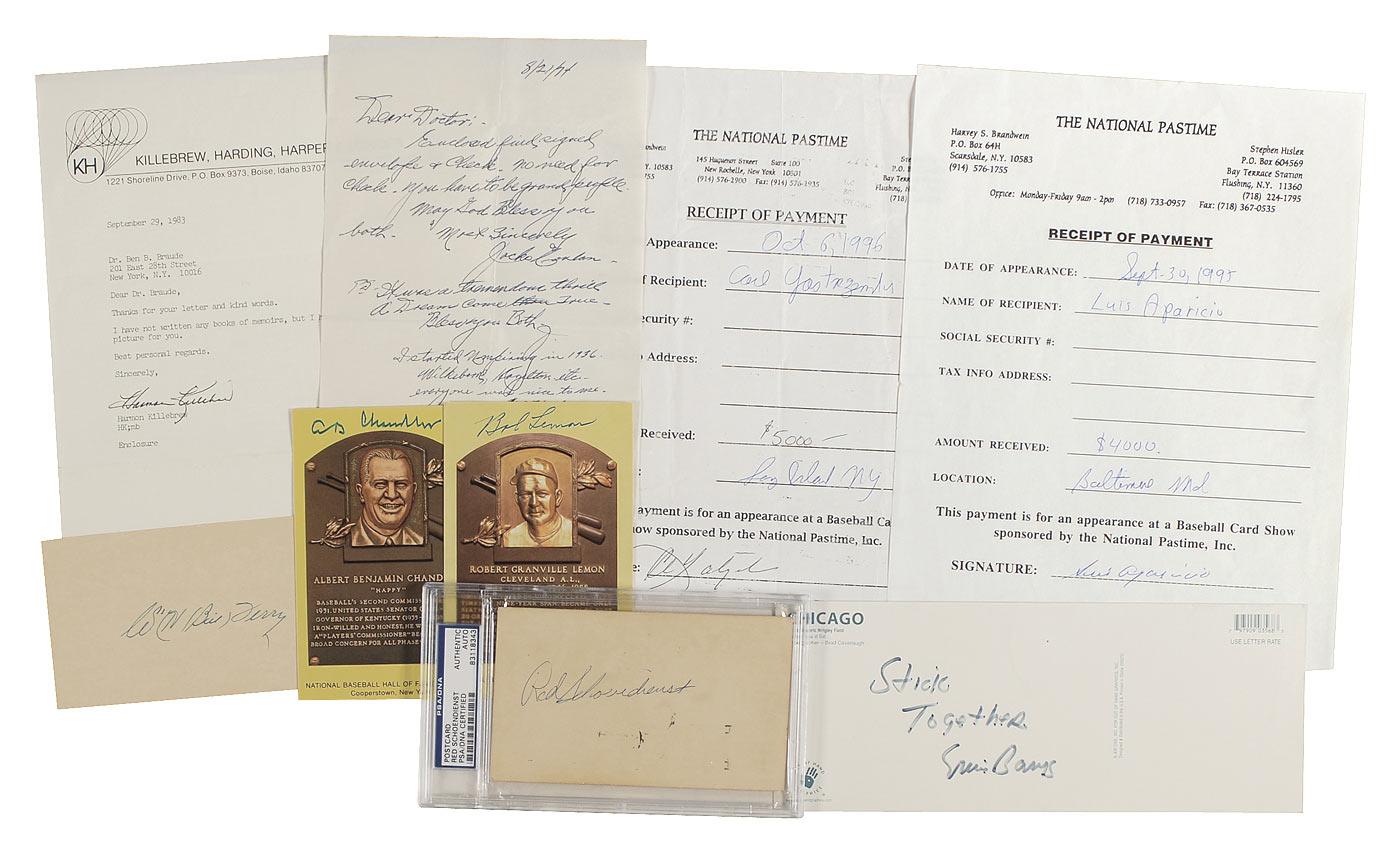 KH
KILLEBREW, HARDING, HARPER
1221 Shoreline Drive, P.O. Box 9373, Boise, Idaho 83707
September 29, 1983
Dr. Ben B. Braude
201 East 28th Street
New York, N.Y. 10016
Dear Dr. Braude,
Thanks for your letter and kind words.
I have not written any books of memoirs, but I
picture for you.
Best personal regards.
Sincerely,
Harmon Killebrew
Harmon Killebrew
HK;mb
Enclosure
8/21/74
Dear Doctor:
Enclosed find signed
envelope & check. no need for
check. you have to be grand people.
May God Bless you
both. Most Sincerely
Jocko Conlan
P.S. It was a tremendous thrill
a Dream come true
Bless you Both
I started Umpiring in 1936.
everyone was nice to me.
THE NATIONAL PASTIME
145 Huguenot Street Suite 100
New Rochelle, New York 10801
(914) 576-2900 Fax: (914) 576-1935
RECEIPT OF PAYMENT
Appearance: Oct 6, 1996
f Recipient: Carl Yastrzemski
ecurity #:
Address:
Received: $5000 -
Long Island NY
ayment is for an appearance at a Baseball Ca
ow sponsored by the National Pastime, Inc.
THE NATIONAL PASTIME
Harvey S. Brandwein
P.O. Box 64H
Scarsdale, N.Y. 10583
(914) 576-1755
Stephen Hisler
P.O. Box 604569
Bay Terrace Station
Flushing, N.Y. 11360
(718) 224-1795
Office: Monday-Friday 9am - 2pm (718) 733-0957 Fax: (718) 367-0535
RECEIPT OF PAYMENT
DATE OF APPEARANCE: Sept. 30, 1995
NAME OF RECIPIENT: Luis Aparicio
SOCIAL SECURITY #:
TAX INFO ADDRESS:
AMOUNT RECEIVED: $4000.
LOCATION: Baltimore Md
This payment is for an appearance at a Baseball Card Show
sponsored by the National Pastime, Inc.
SIGNATURE: Luis Aparicio
W H (Bill) Terry
AB Chandler
ALBERT BENJAMIN CHAND
"HAPPY"
BASEBALL'S SECOND COMMIS
1951. UNITED STATES SENATOR
GOVERNOR OF KENTUCKY (1935-
IRON-WILLED AND HONEST, HE W
A "PLAYERS' COMMISSIONER" BE
BROAD CONCERN FOR ALL PHASE
NATIONAL BASEBALL HALL OF F
Cooperstown, New Y
Bob Lemon
ROBERT GRANVILLE LEMON
CLEVELAND A.L.,
PSA/DNA
AUTHENTIC
AUTO
83118343
POSTCARD
RED SCHOENDIENST
PSA/DNA CERTIFIED
Red Schoendienst
CHICAGO
USE LETTER RATE
Stick
Together
Ernie Banks